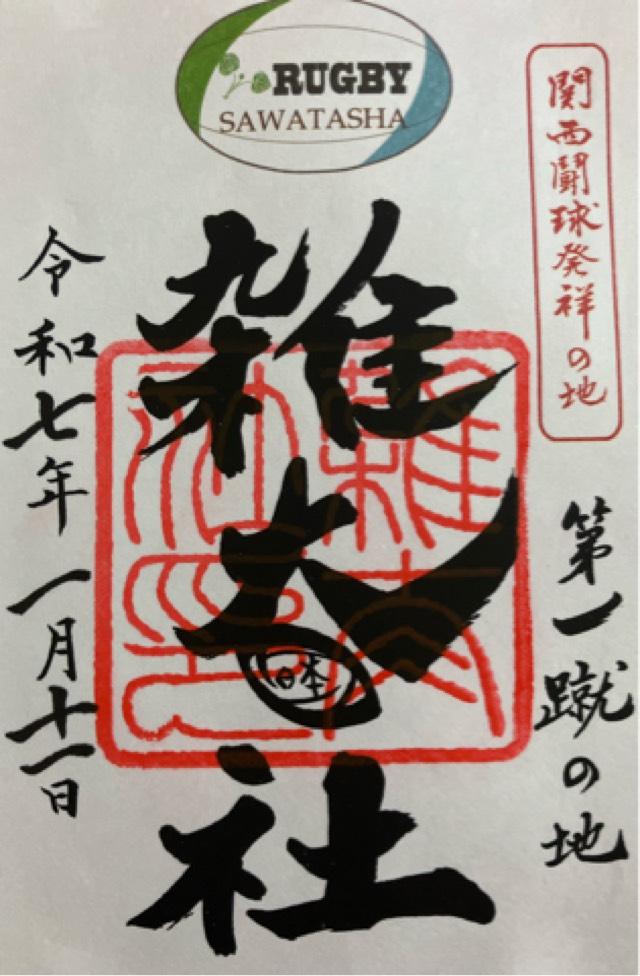 RUGBY
SAWATASHA
関西闘球発祥の地
第一蹴の地
雑太社
令和七年一月十一日